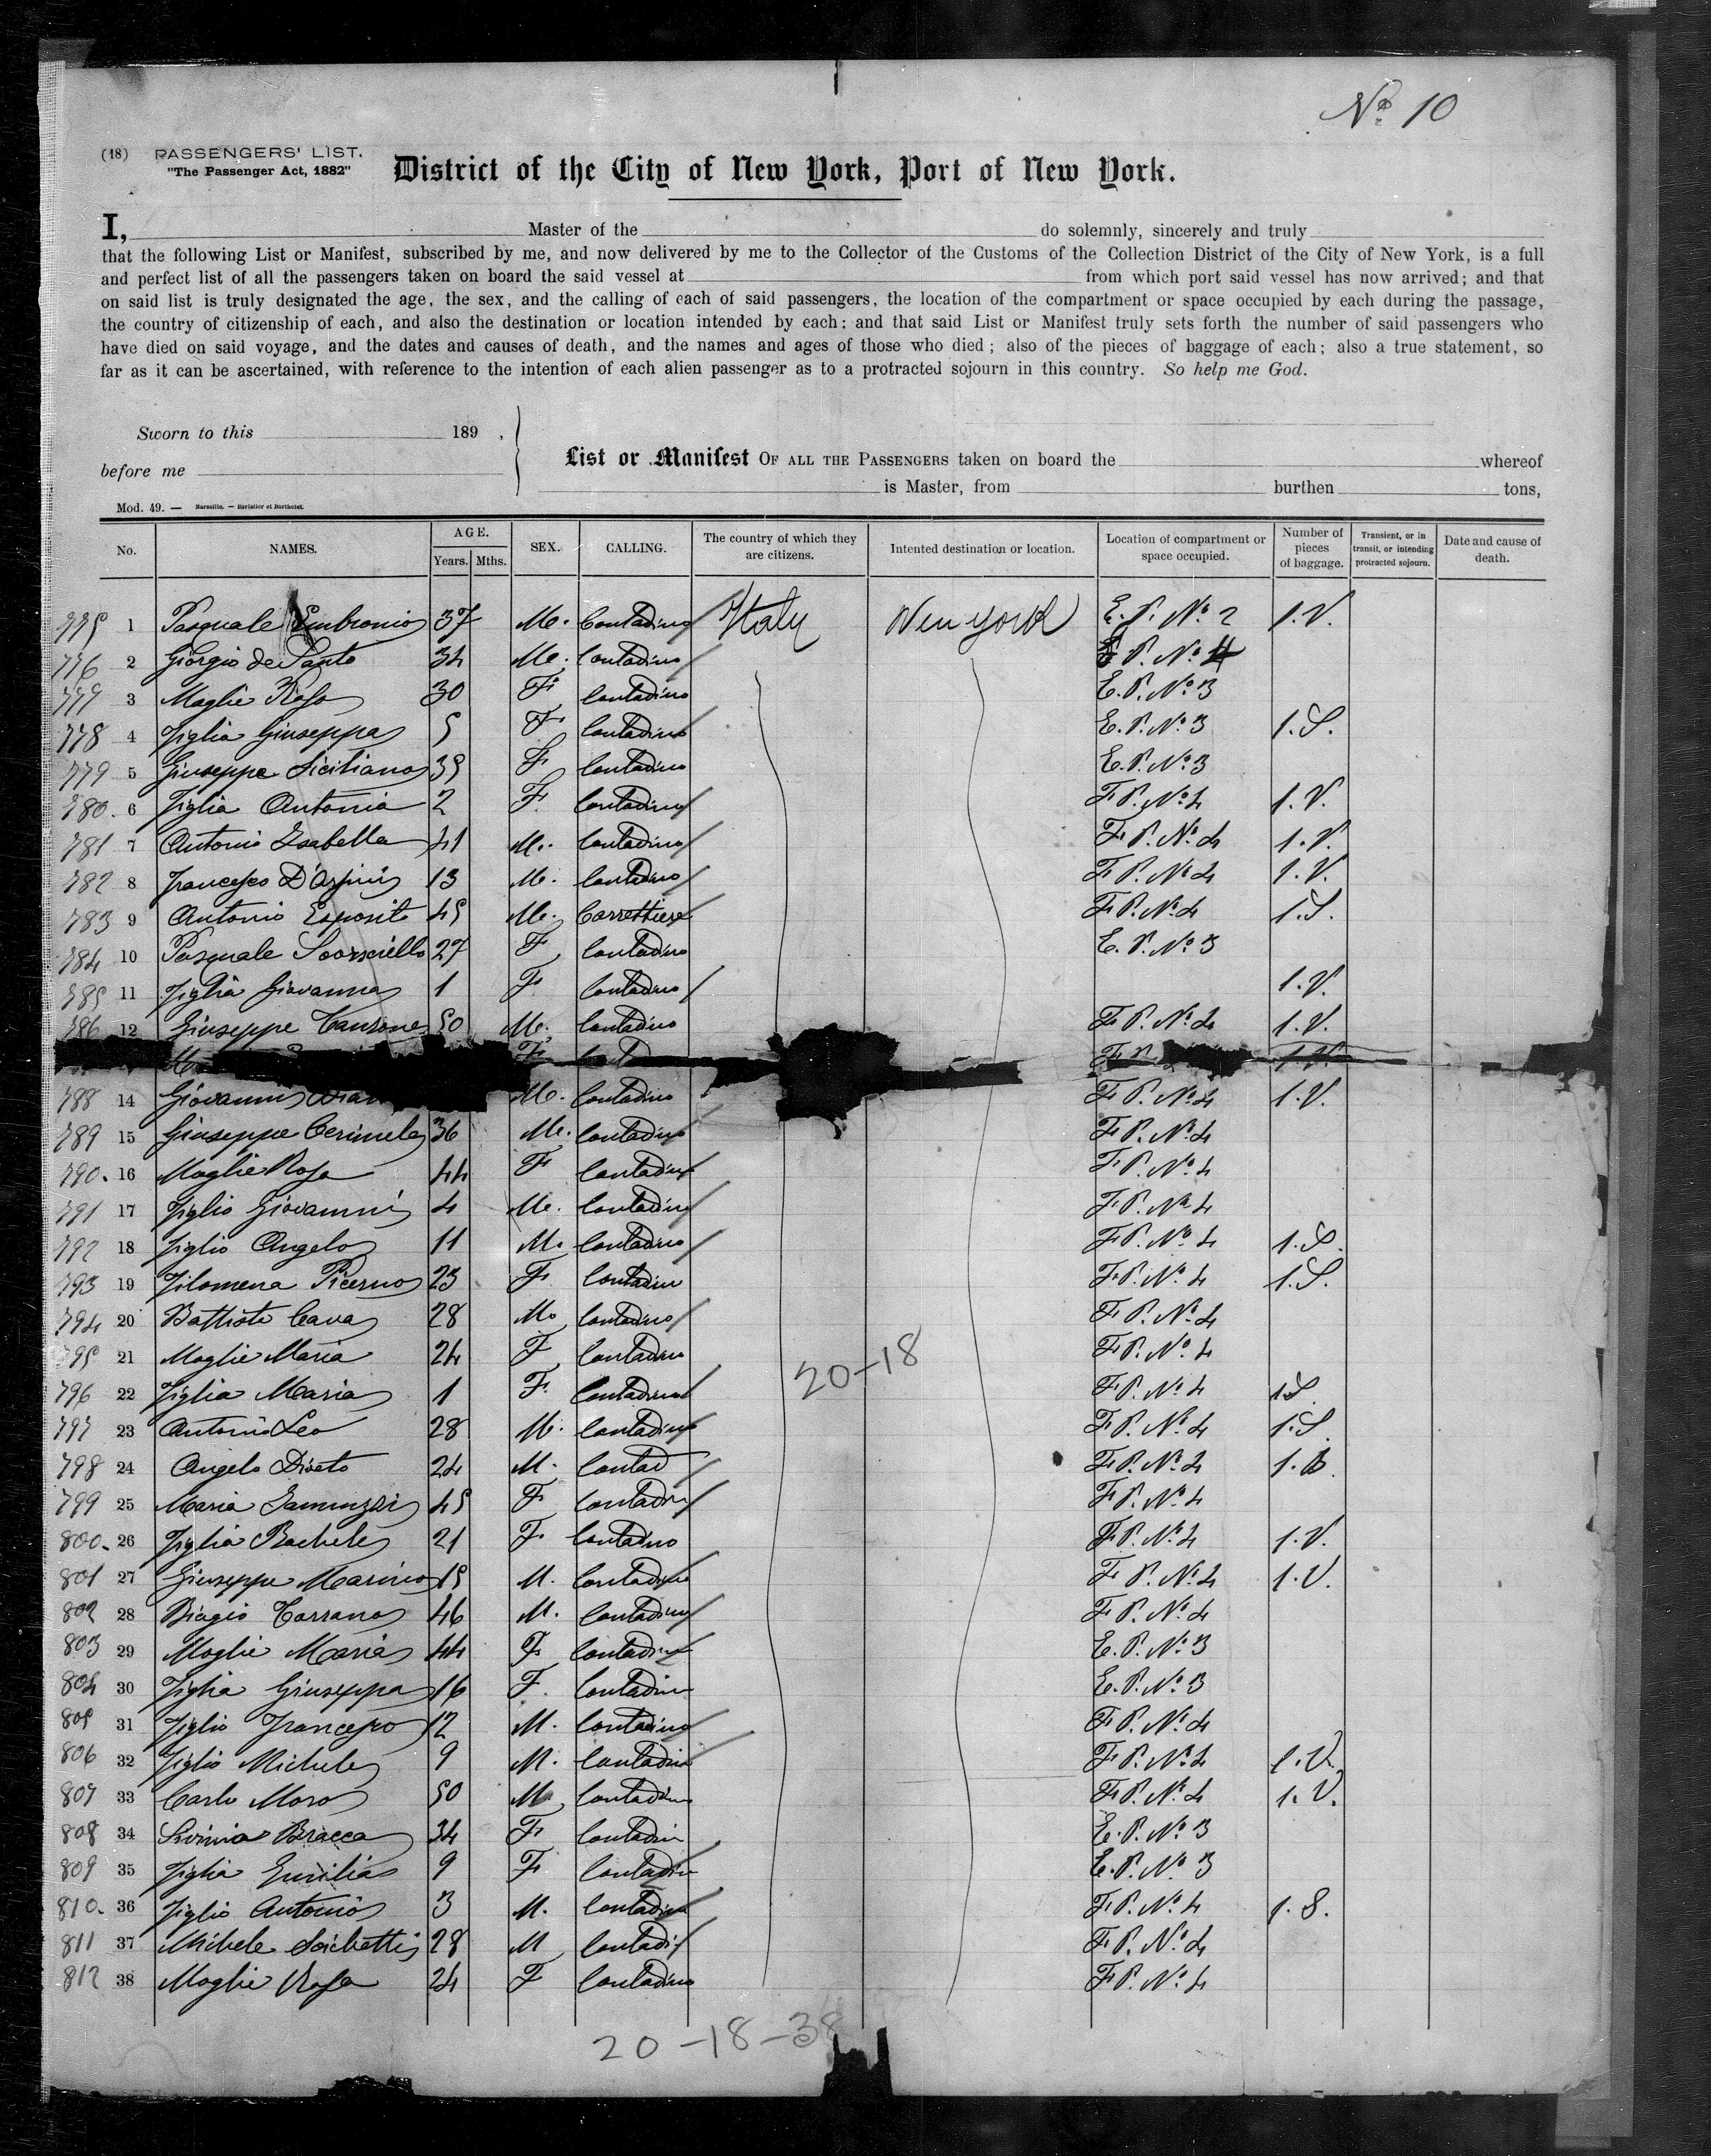 Nº 10
(18) PASSENGERS' LIST.
"The Passenger Act, 1882"
District of the City of New York, Port of New York.
I, Master of the do solemnly, sincerely and truly
that the following List or Manifest, subscribed by me, and now delivered by me to the Collector of the Customs of the Collection District of the City of New York, is a full
and perfect list of all the passengers taken on board the said vessel at from which port said vessel has now arrived; and that
on said list is truly designated the age, the sex, and the calling of each of said passengers, the location of the compartment or space occupied by each during the passage,
the country of citizenship of each, and also the destination or location intended by each: and that said List or Manifest truly sets forth the number of said passengers who
have died on said voyage, and the dates and causes of death, and the names and ages of those who died; also of the pieces of baggage of each; also a true statement, so
far as it can be ascertained, with reference to the intention of each alien passenger as to a protracted sojourn in this country. So help me God.
Sworn to this 189 ,
before me
List or Manifest OF ALL THE PASSENGERS taken on board the whereof
is Master, from burthen tons,
Mod. 49. — Marseille. — Barlatier et Barthelet.
No. NAMES. AGE. Years. Mths. SEX. CALLING. The country of which they are citizens. Intented destination or location. Location of compartment or space occupied. Number of pieces of baggage. Transient, or in transit, or intending protracted sojourn. Date and cause of death.
775 1 Pasquale 37 M. Contadino Italy New York E. P. Nº 2 1.V.
776 2 Giorgio de Santo 34 M. Contadino P. Nº 4
777 3 Moglie Rosa 30 F. Contadino E. P. Nº 3
778 4 Figlia Giuseppa 5 F Contadino E. P. Nº 3 1.S.
779 5 Giuseppe Siciliano 35 F Contadino E. P. Nº 3
780. 6 Figlia Antonia 2 F. Contadino F P. Nº 4 1.V.
781 7 Antonio Isabella 41 M. Contadino F P. Nº 4 1.V.
782 8 Francesco 13 M. Contadino F P. Nº 4 1.V.
783 9 Antonio Esposito 45 M. Carrettiere F P. Nº 4 1.S.
784 10 Pasquale 27 F Contadino E. P. Nº 3
785 11 Figlia Giovanna 1 F. Contadino 1.V.
786 12 Giuseppe Canzone 50 M. Contadino F P. Nº 4 1.V.
F 1.V.
788 14 Giovanni M. Contadino F P. Nº 4 1.V.
789 15 Giuseppe Cerimele 36 M. Contadino F P. Nº 4
790. 16 Moglie Rosa 44 F Contadino F P. Nº 4
791 17 Figlio Giovanni 4 M. Contadino F P. Nº 4
792 18 Figlio Angelo 11 M. Contadino F P. Nº 4 1.S.
793 19 Filomena Picerno 23 F Contadin F P. Nº 4 1.S.
794 20 Battista Cava 28 M. Contadino F P. Nº 4
795 21 Moglie Maria 24 F Contadino F P. Nº 4
20-18
796 22 Figlia Maria 1 F. Contadino F P. Nº 4 1S.
797 23 Antonio Leo 28 M. Contadino F P. Nº 4 1.S.
798 24 Angelo 24 M. Contad F P. Nº 4 1.B.
799 25 Maria 45 F Contadin F P. Nº 4
800. 26 Figlia Rachele 21 F Contadino F P. Nº 4 1.V.
801 27 Giuseppe Marino 15 M. Contadino F P. Nº 4 1.V.
802 28 Biagio 46 M. Contadino F P. Nº 4
803 29 Moglie Maria 44 F Contadin E. P. Nº 3
804 30 Figlia Giuseppa 16 F. Contadin E. P. Nº 3
805 31 Figlio Francesco 12 M. Contadino F P. Nº 4
806 32 Figlio Michele 9 M. Contadin F P. Nº 4 1.V.
807 33 Carlo Moro 50 M Contadino F P. Nº 4 1.V.
808 34 Bracca 34 F Contadin E. P. Nº 3
809 35 Figlia Emilia 9 F Contadin E. P. Nº 3
810. 36 Figlio Antonio 3 M. Contadin F P. Nº 4 1.S.
811 37 Michele 28 M Contadi F P. Nº 4
812 38 Moglie Rosa 24 F Contadino F P. Nº 4
20-18-38